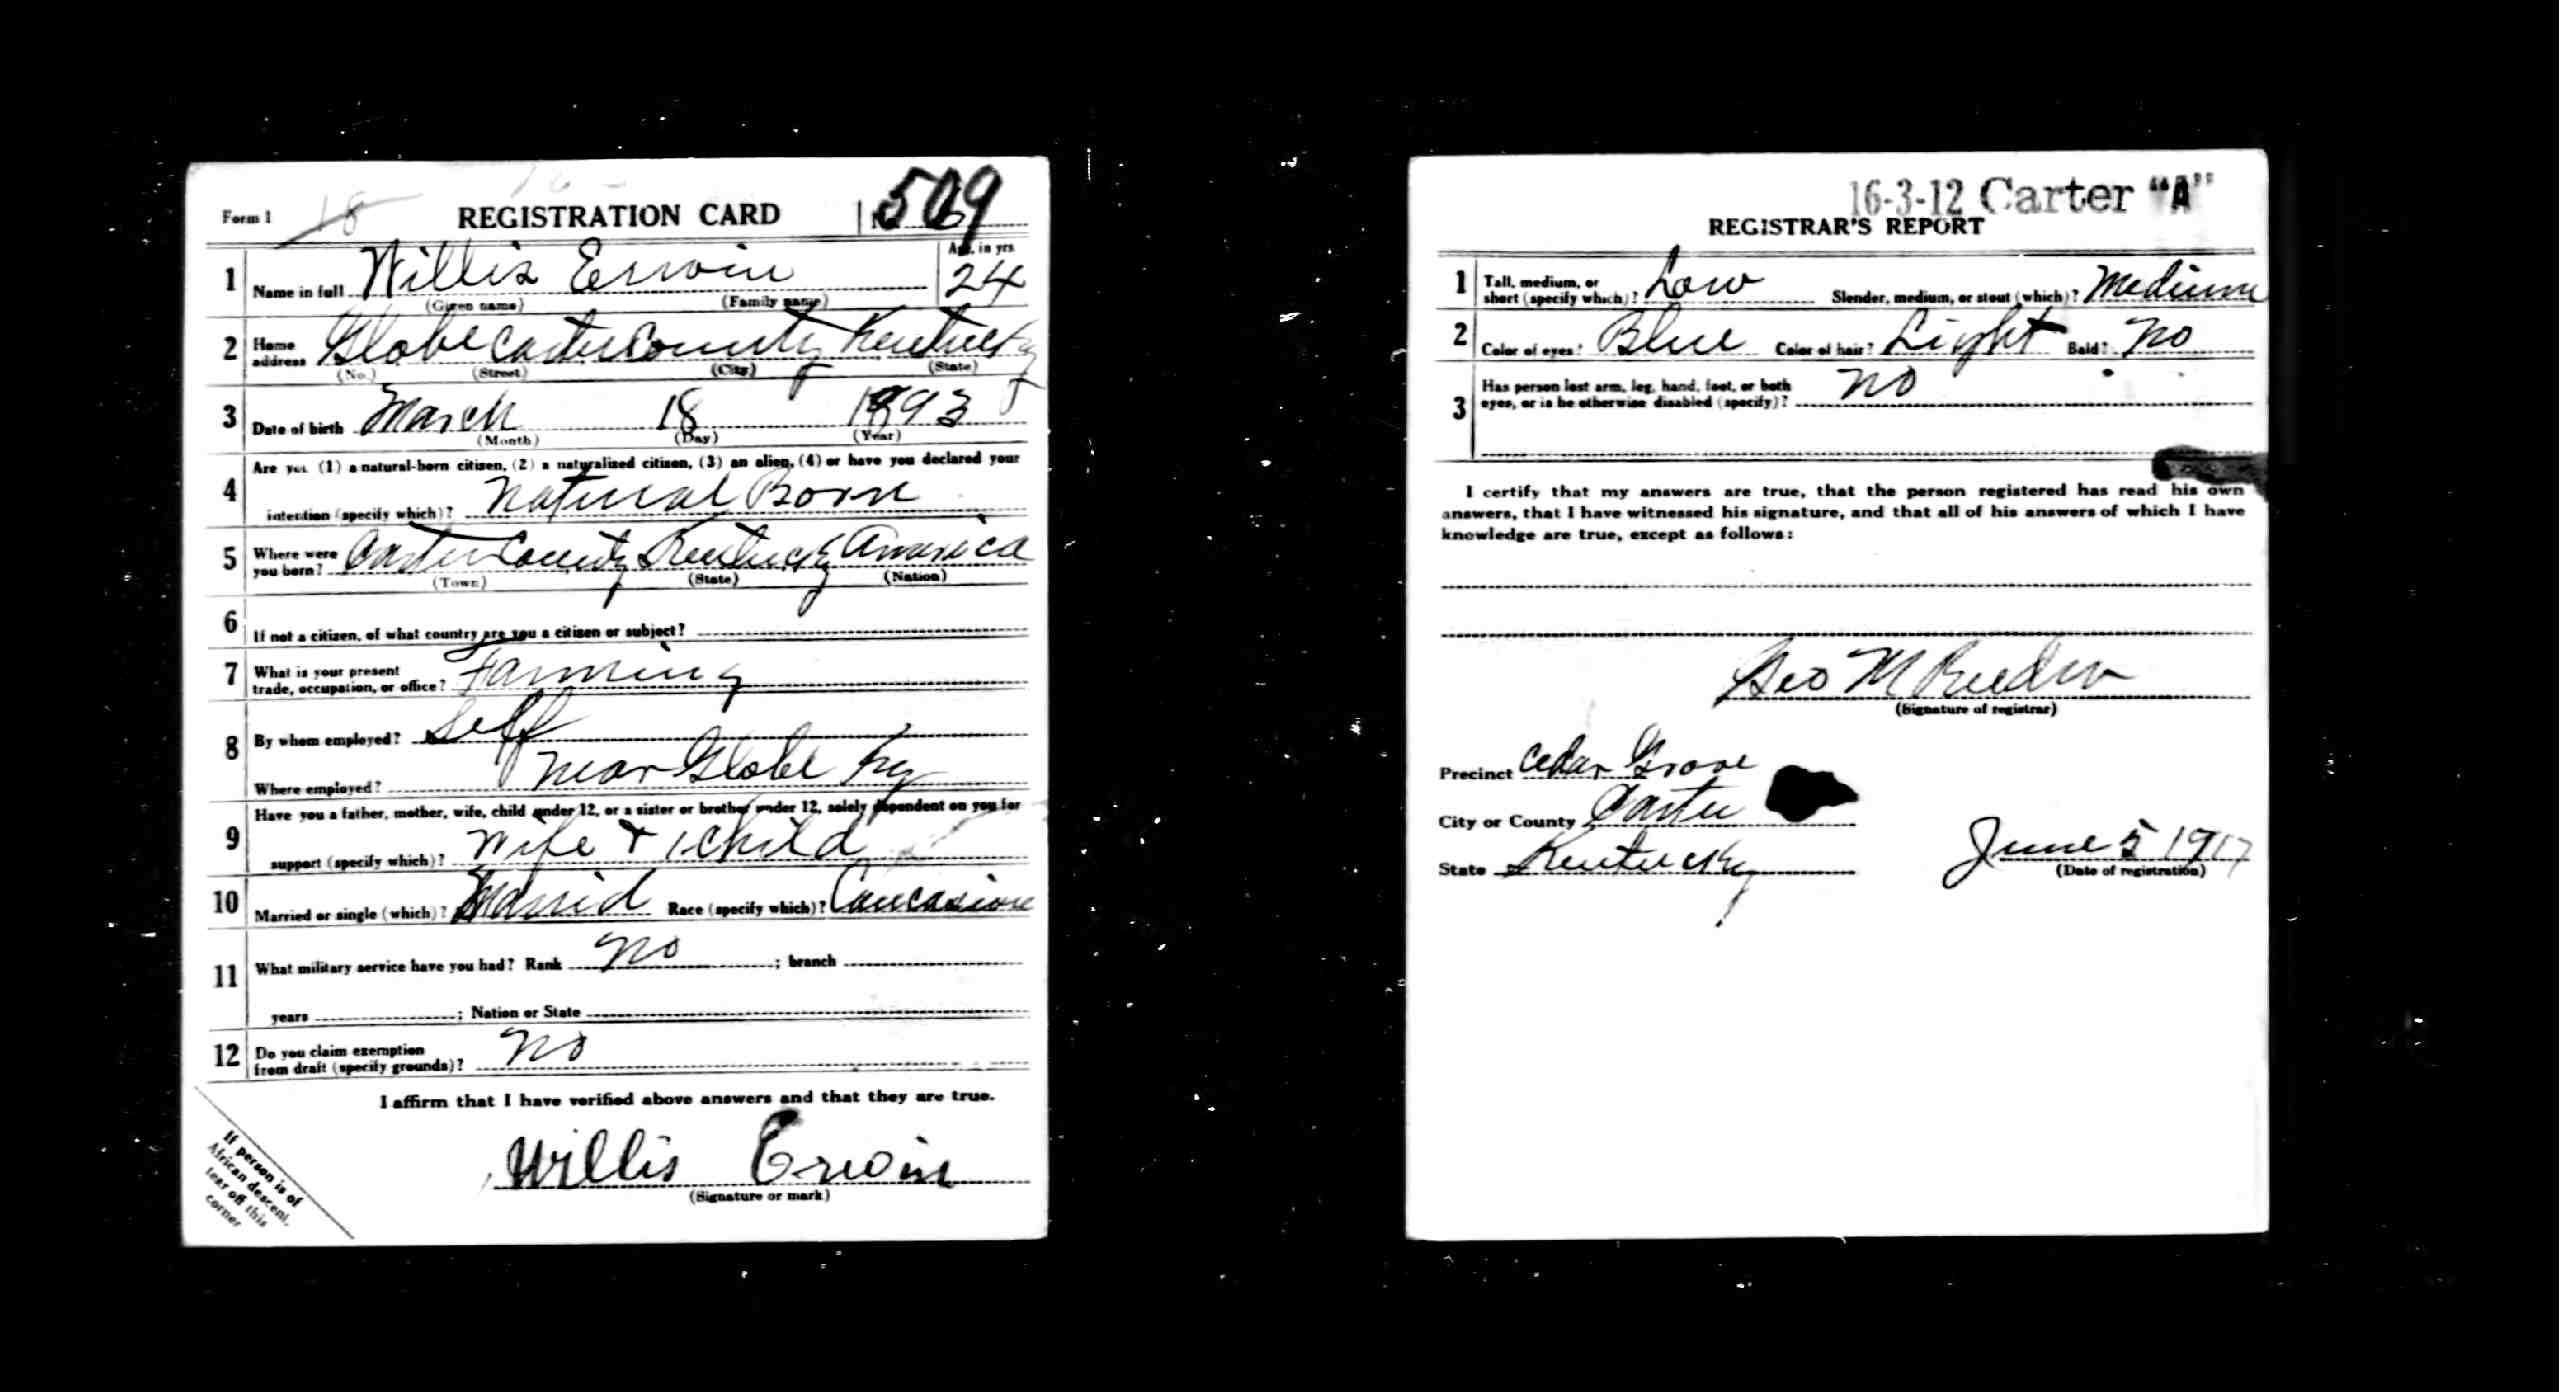 Form 1 18 REGISTRATION CARD 509
1 Name in full Willis Erwin Age, in yrs 24
(Given name) (Family name)
2 Home address Globe Carter County Kentucky
(No.) (Street) (City) (State)
3 Date of birth March 18 1893
(Month) (Day) (Year)
Are you (1) a natural-born citizen, (2) a naturalized citizen, (3) an alien, (4) or have you declared your
4 intention (specify which)? Natural Born
5 Where were you born? Carter County Kentucky America
(Town) (State) (Nation)
6 If not a citizen, of what country are you a citizen or subject?
7 What is your present
trade, occupation, or office? Farming
8 By whom employed? Self
Where employed? Near Globe Ky
Have you a father, mother, wife, child under 12, or a sister or brother under 12, solely dependent on you for
9 support (specify which)? Wife + 1 Child
10 Married or single (which)? Marrid Race (specify which)? Caucasion
11 What military service have you had? Rank No ; branch
years ; Nation or State
12 Do you claim exemption
from draft (specify grounds)? No
I affirm that I have verified above answers and that they are true.
Willis Erwin
(Signature or mark)
If person is of
African descent,
tear off this
corner
16-3-12 Carter "A"
REGISTRAR'S REPORT
1 Tall, medium, or
short (specify which)? Low Slender, medium, or stout (which)? Medium
2 Color of eyes? Blue Color of hair? Light Bald? No
3 Has person lost arm, leg, hand, foot, or both
eyes, or is he otherwise disabled (specify)? No
I certify that my answers are true, that the person registered has read his own
answers, that I have witnessed his signature, and that all of his answers of which I have
knowledge are true, except as follows:
Geo M Reeder
(Signature of registrar)
Precinct Cedar Grove
City or County Carter
State Kentucky June 5 1917
(Date of registration)